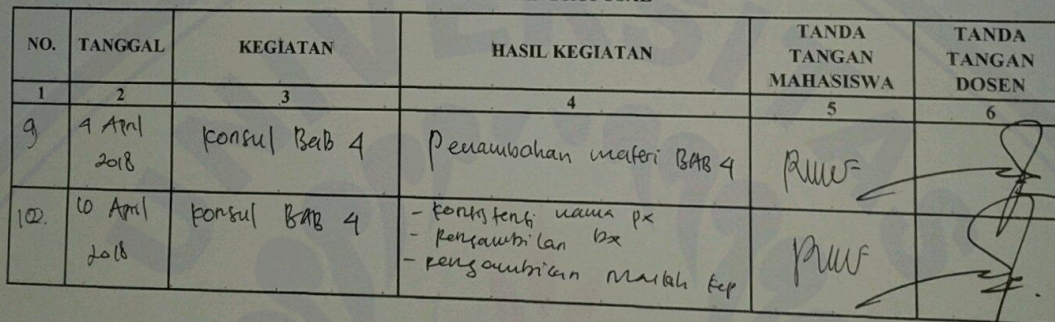 NO. TANGGAL KEGIATAN HASIL KEGIATAN TANDA TANGAN MAHASISWA TANDA TANGAN DOSEN
1 2 3 4 5 6
9 4 April 2018 Konsul Bab 4 Penambahan materi BAB 4
10. 10 April 2018 konsul BAB 4 - konsistensi nama px
- Pengambilan Dx
- pengambilan masalah kep